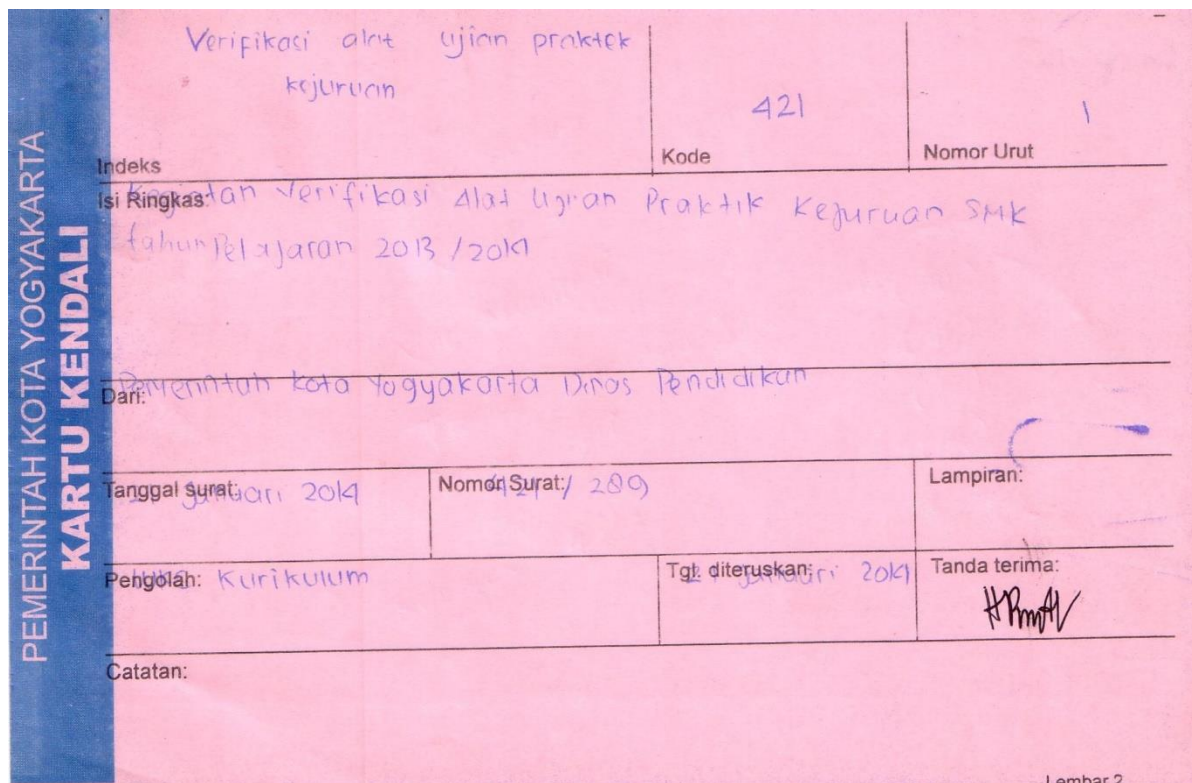 PEMERINTAH KOTA YOGYAKARTA
KARTU KENDALI
Verifikasi alat ujian praktek
kejuruan
421
1
Indeks
Kode
Nomor Urut
Isi Ringkas:
Kegiatan Verifikasi Alat Ujian Praktik Kejuruan SMK
tahun Pelajaran 2013 / 2014
Pemerintah Kota Yogyakarta Dinas Pendidikan
Dari:
Tanggal surat:
Januari 2014
Nomor Surat:
421 / 289
Lampiran:
Pengolah:
Kurikulum
Tgl. diteruskan:
Januari 2014
Tanda terima:
Catatan:
Lembar 2